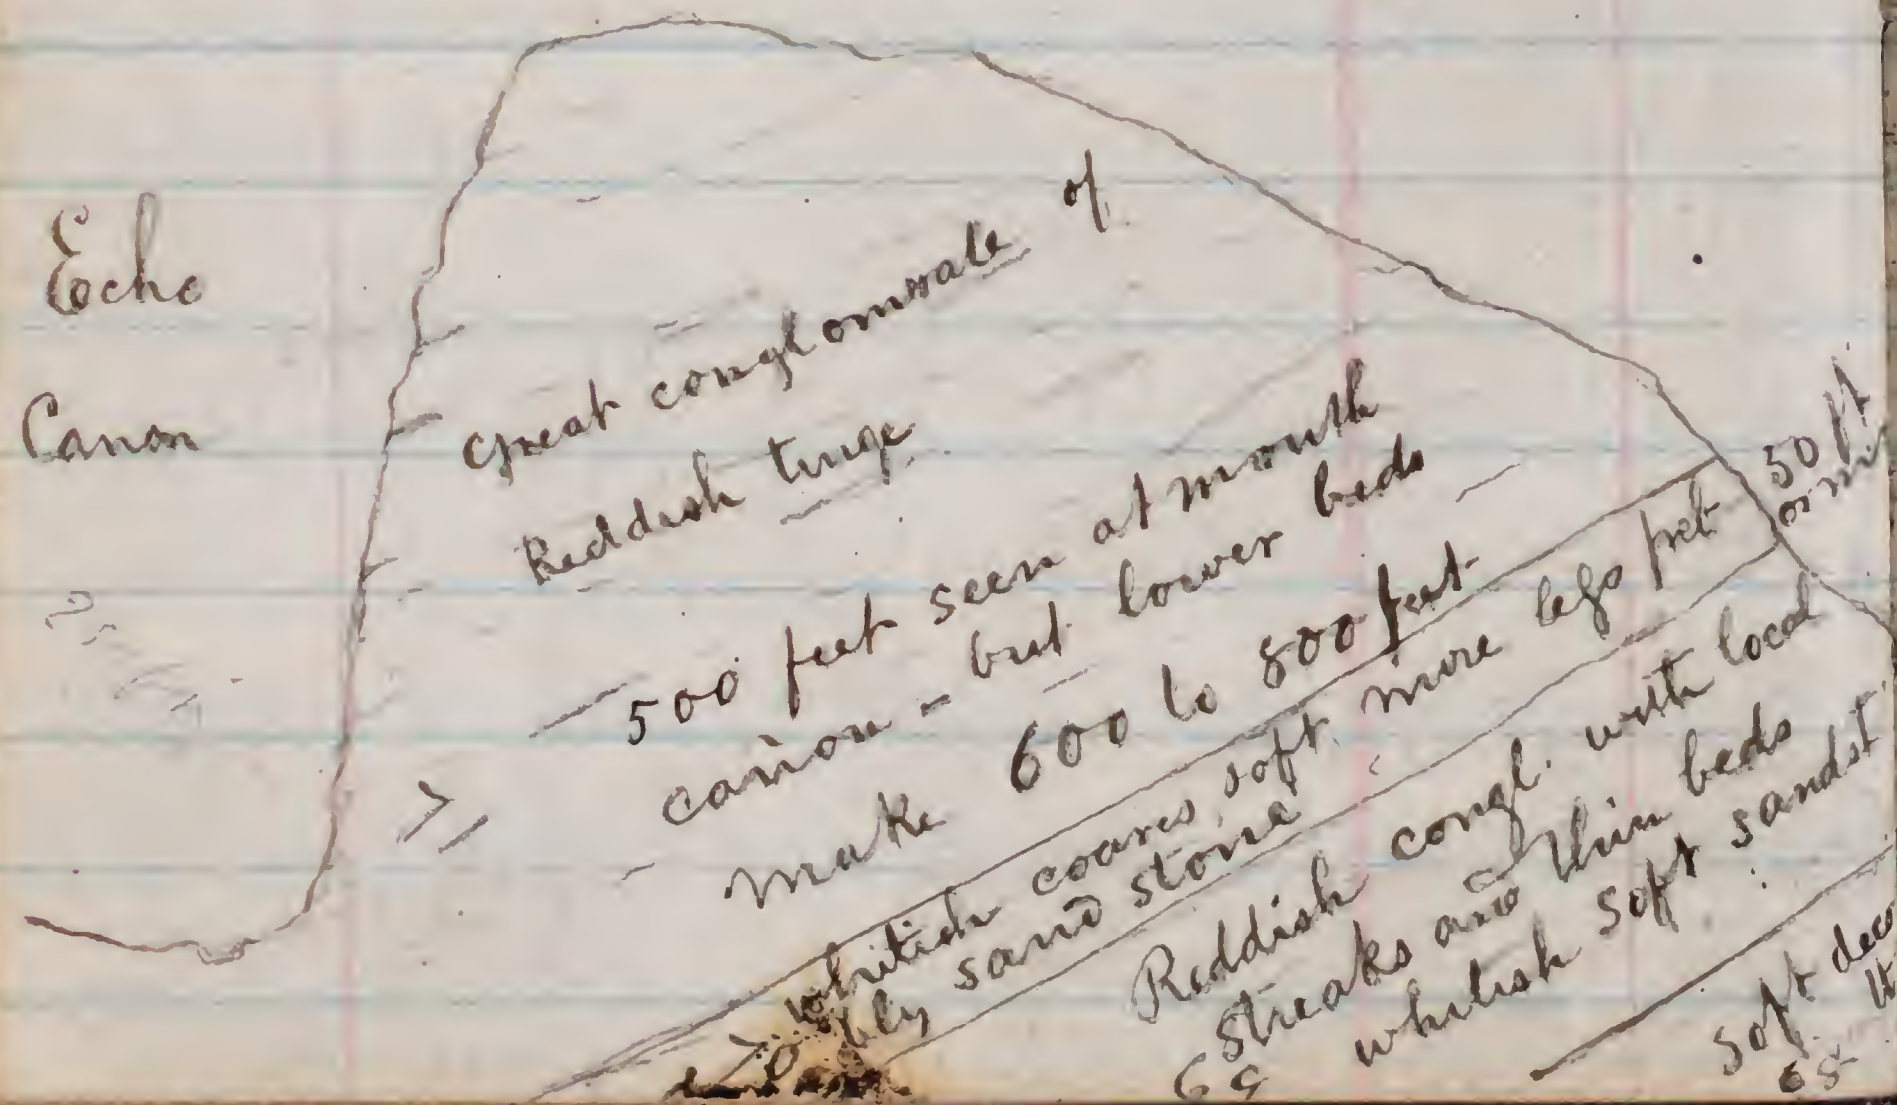 Echo
Canon
Great conglomorate of
Reddish tinge
500 feet seen at mouth
cañon - but lower beds
make 600 to 800 feet
whitish coares, soft, more less peb
bly sand stone
50 ft
Reddish congl. with local
streaks and thin beds
whitish soft sandst
soft